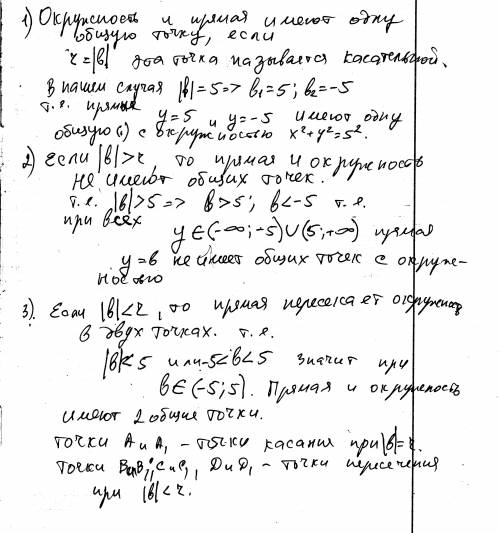 1) Окружность и прямая имеют одну
общую точку, если
r=|b| эта точка называется касательной.
В нашем случая |b|=5=> b₁=5; b₂=-5
т.е. прямые
y=5 и y=-5 имеют одну
общую(о) с окружностью x²+y²=5².
2) Если |b|>r, то прямая и окружность
не имеют общих точек.
т.е. |b|>5=> b>5; b<-5 т.е.
при всех
y∈(-∞;-5)∪(5;+∞) прямая
y=b не имеет общих точек с окруж-
ностью
3). Если |b|<r, то прямая пересекает окружность
в двух точках. т.е.
|b|<5 или -5<b<5 значит при
b∈(-5;5). Прямая и окружность
имеют 2 общие точки.
Точки A и A₁ - точки касания при |b|=r.
Точки B и B₁; C и C₁, D и D₁ - точки пересечения
при |b|<r.